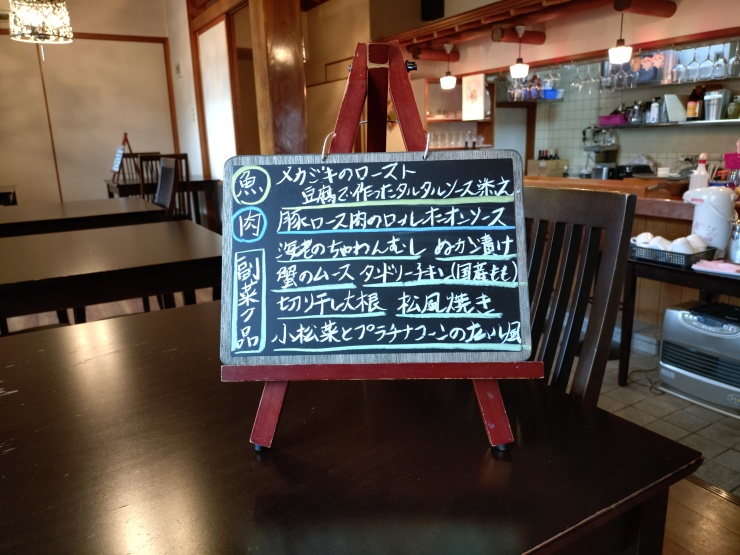 魚 メカジキのロースト
豆腐で作ったタルタルソース添え
肉 豚ロース肉のロールオニオンソース
副菜7品 海老のちゃわんむし ぬか漬け
蟹のムース タンドリーチキン(国産もも)
切り干し大根 松風焼き
小松菜とプラチナコーンの